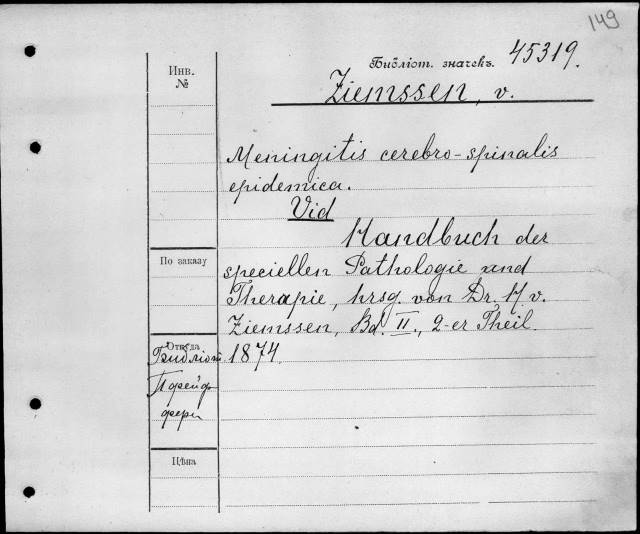 149
Инв.
№
Библіот. значекъ 45319.
Ziemssen, v.
Meningitis cerebro-spinalis
epidemica.
Vid
Handbuch der
По заказу
speciellen Pathologie und
Therapie, hrsg. von Dr. H v.
Ziemssen, Bd. II., 2-er Theil.
Откуда
Библіот. 1874.
Пфейф-
фери
Цѣна